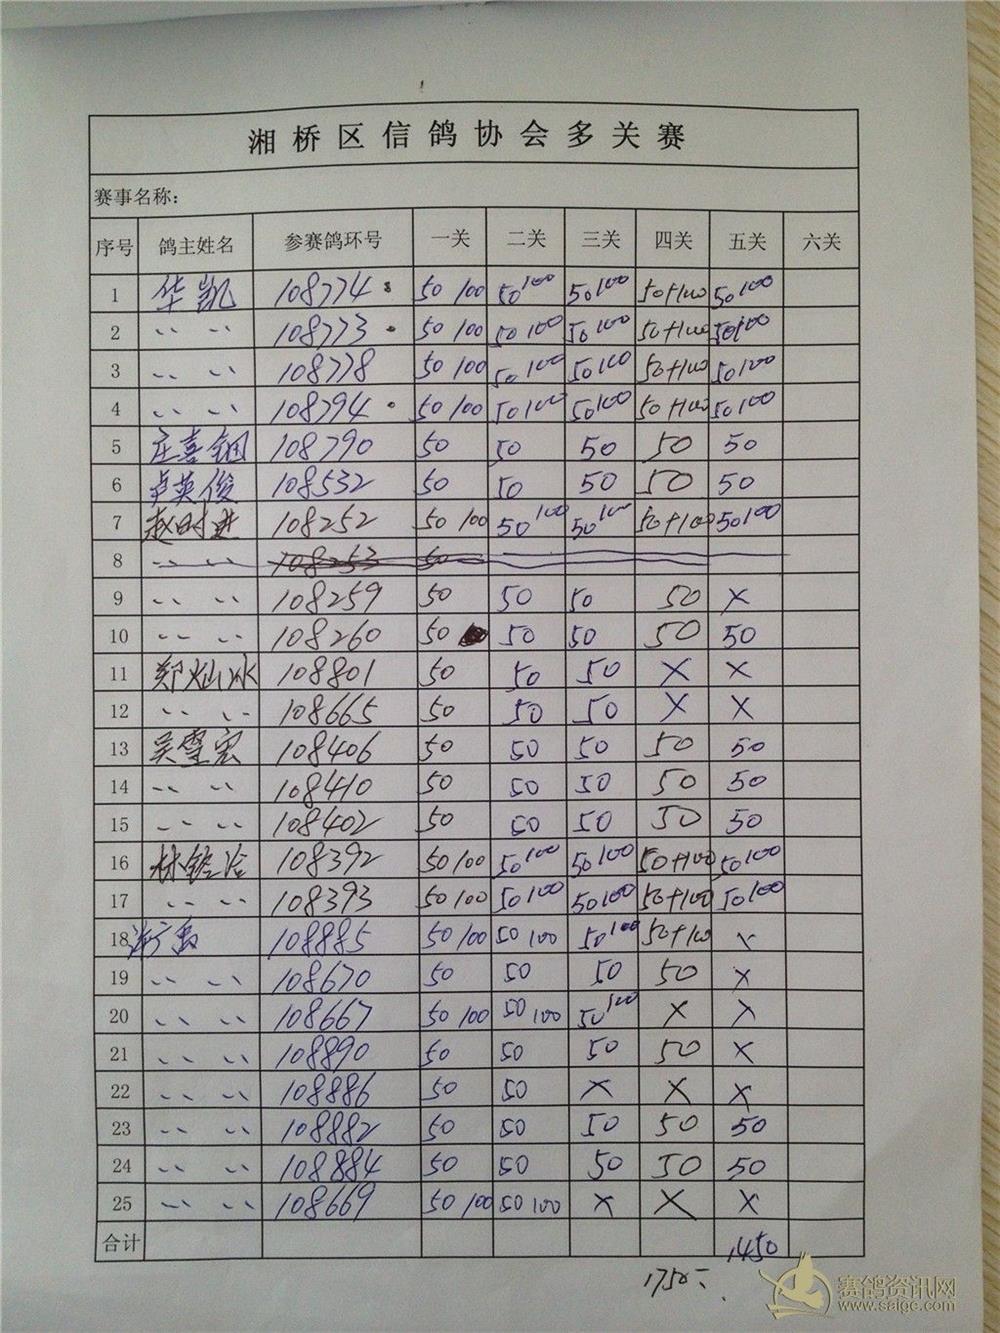 湘桥区信鸽协会多关赛
赛事名称：
序号 鸽主姓名 参赛鸽环号 一关 二关 三关 四关 五关 六关
1 华凯 108774 50 100 50 100 50 100 50+100 50 100
2 〃 〃 108773 50 100 50 100 50 100 50+100 50 100
3 〃 〃 108778 50 100 50 100 50 100 50+100 50 100
4 〃 〃 108794 50 100 50 100 50 100 50+100 50 100
5 庄喜钿 108790 50 50 50 50 50
6 卢英俊 108532 50 50 50 50 50
7 赵时进 108252 50 100 50 100 50 100 50+100 50 100
8 〃 〃 108253 50
9 〃 〃 108259 50 50 50 50 ×
10 〃 〃 108260 50 50 50 50 50
11 郑灿冰 108801 50 50 50 × ×
12 〃 〃 108665 50 50 50 × ×
13 吴雪宏 108406 50 50 50 50 50
14 〃 〃 108410 50 50 50 50 50
15 〃 〃 108402 50 50 50 50 50
16 林 108392 50 100 50 100 50 100 50+100 50 100
17 〃 〃 108393 50 100 50 100 50 100 50+100 50 100
18 108885 50 100 50 100 50 100 50+100 ×
19 〃 〃 108670 50 50 50 50 ×
20 〃 〃 108667 50 100 50 100 50 100 × ×
21 〃 〃 108890 50 50 50 50 ×
22 〃 〃 108886 50 50 × × ×
23 〃 〃 108882 50 50 50 50 50
24 〃 〃 108884 50 50 50 50 50
25 〃 〃 108669 50 100 50 100 × × ×
合计 1450
1750
赛鸽资讯网
www.saigc.com